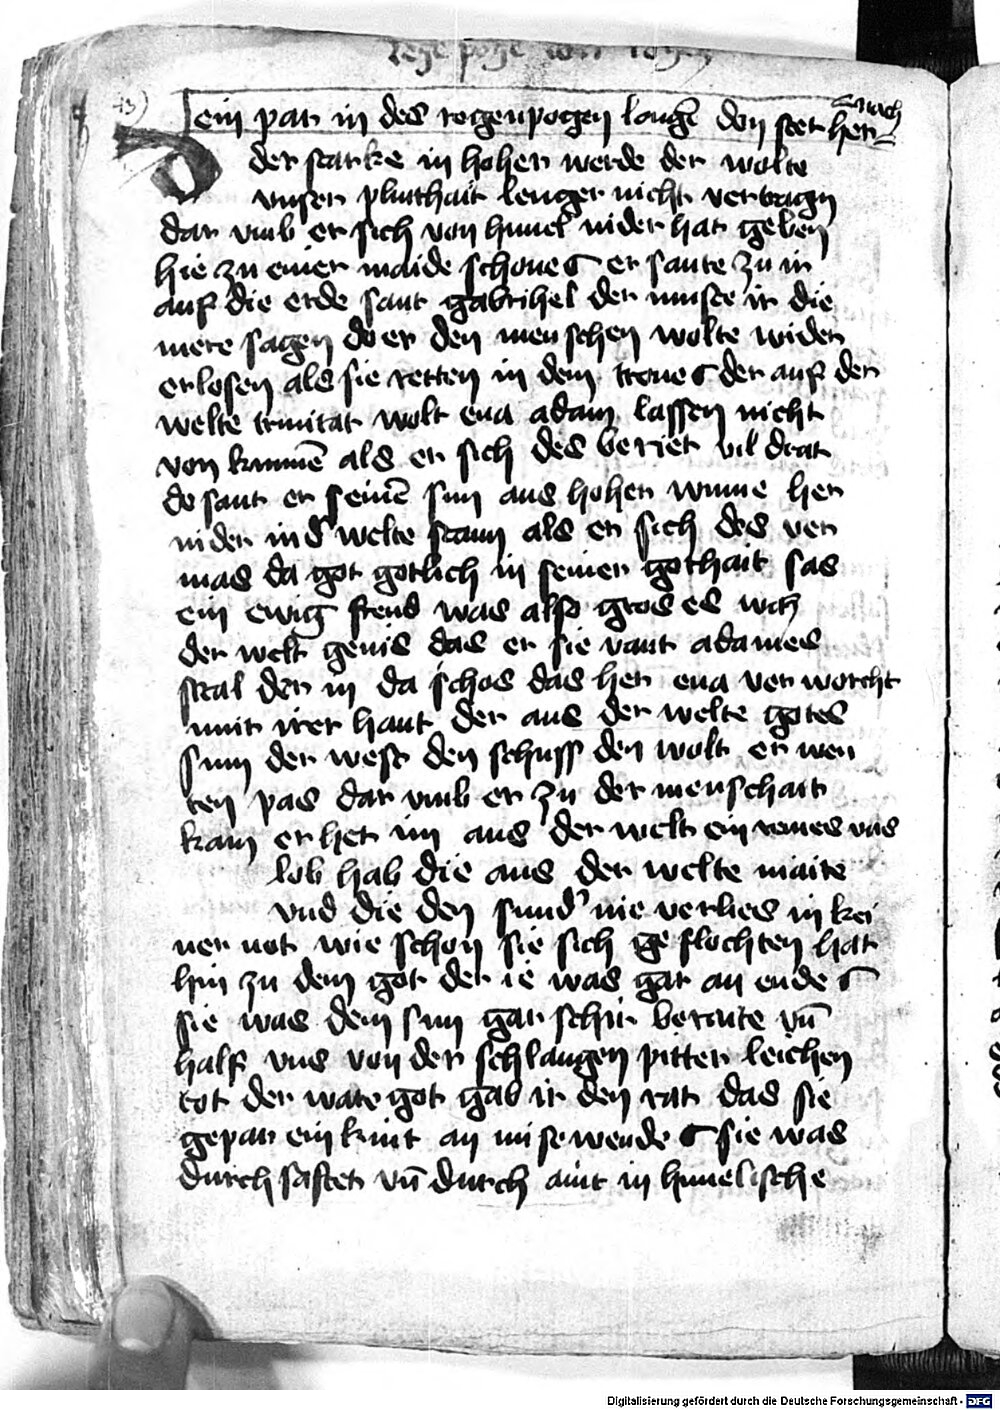 43)
ein par in des regenpogen langē don stet her nach
der starke in hoher werde der wolte
vnser pluthait lenger nicht vertragn
dar vmb er sich von himel nider hat geben
hie zu einer maide schones er sante zu ir
auf die erde sant gabrihel der muste ir die
mere sagen do er den menschen wolte wider
erlosen als sie retten in dem trones der auf der
welte trinitat wolt eua adam lassen nicht
von kummē als er sich des beriet vil drat
do sant er seinē sun aus hoher wune her
nider in d' welte stam als er sich des ver
mas da got gotlich in seiner gothait sas
ein ewig freud was also gros es
der welt genis das er sie vant adames
stal der in da schos das her eua ver worcht
mit irer haut der aus der welte gotes
sun der west den schuss den wolt er wen
ten pas dar vmb er zu der menschait
kam er het im aus der welt ein vas
lob hab die aus der welte maite
vnd die den sund' nie verlies in kei
ner not wie schon sie sich geflochten hat
hin zu dem got der ie was gar an ende
sie was dem sun gar schir beraite vn̄
half vns von der schlangen pitter leichen
tot der ware got gab ir den rat das sie
gepar ein kint an misewende sie was
durch saftet vn̄ durch aint in himelische
Digitalisierung gefördert durch die Deutsche Forschungsgemeinschaft - DFG